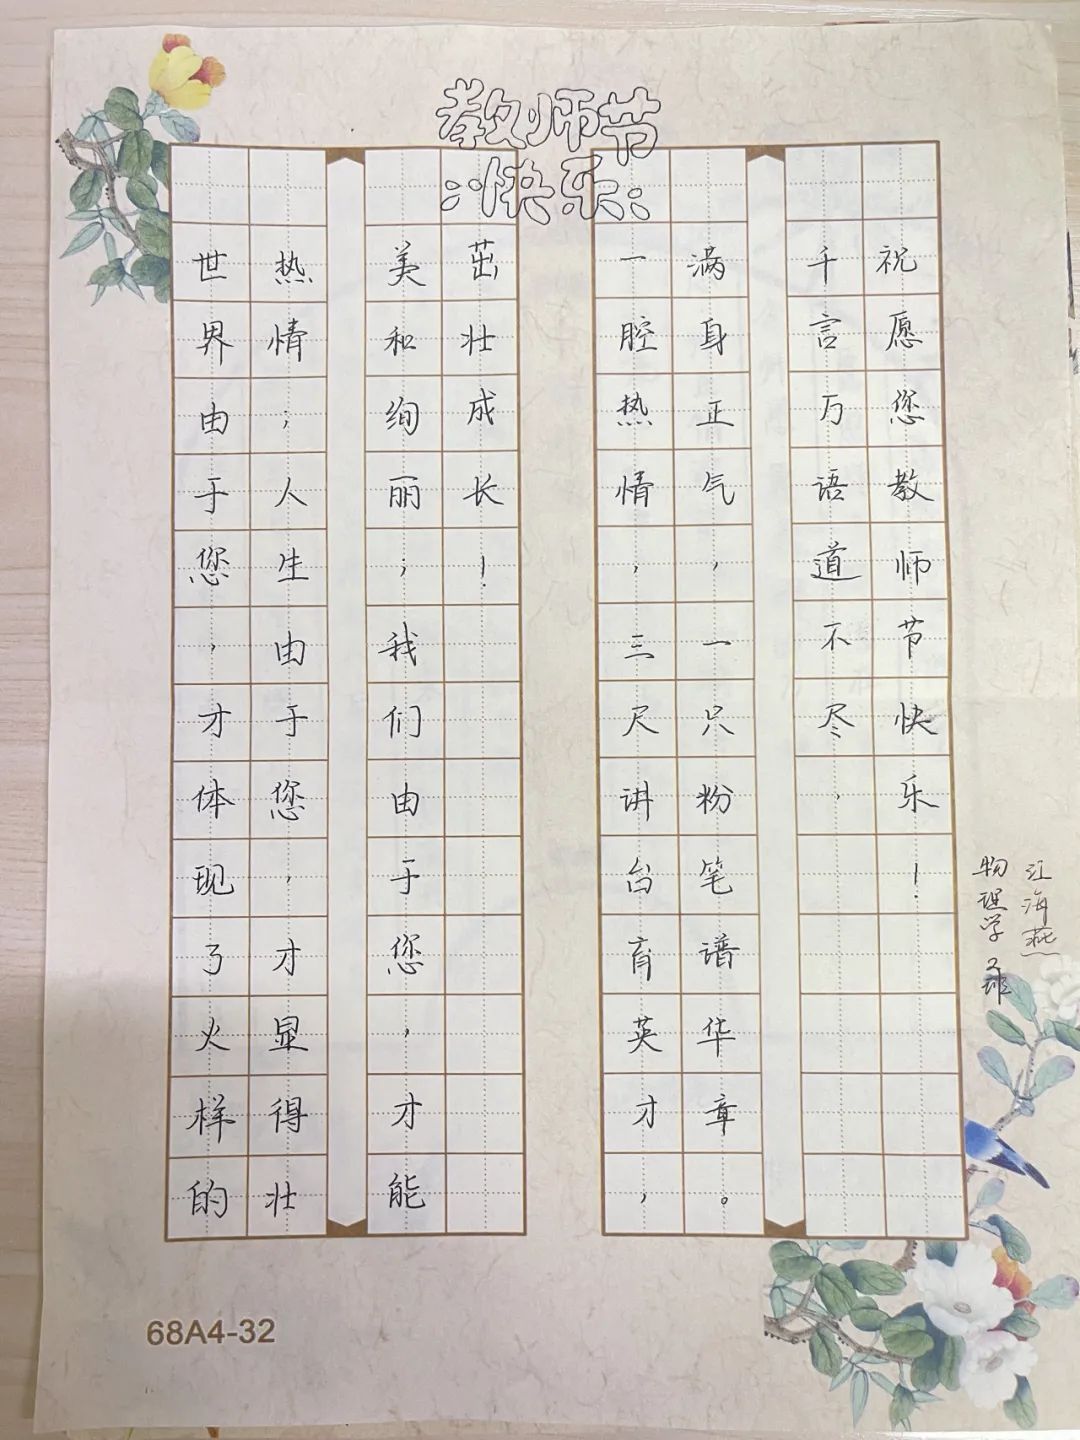 教师节
快乐
世界由于您，才体现了火样的
热情；人生由于您，才显得壮
美和绚丽；我们由于您，才能
茁壮成长！
一腔热情，三尺讲台育英才，
满身正气，一只粉笔谱华章。
千言万语道不尽，
祝愿您教师节快乐！
物理学
江海燕
68A4-32